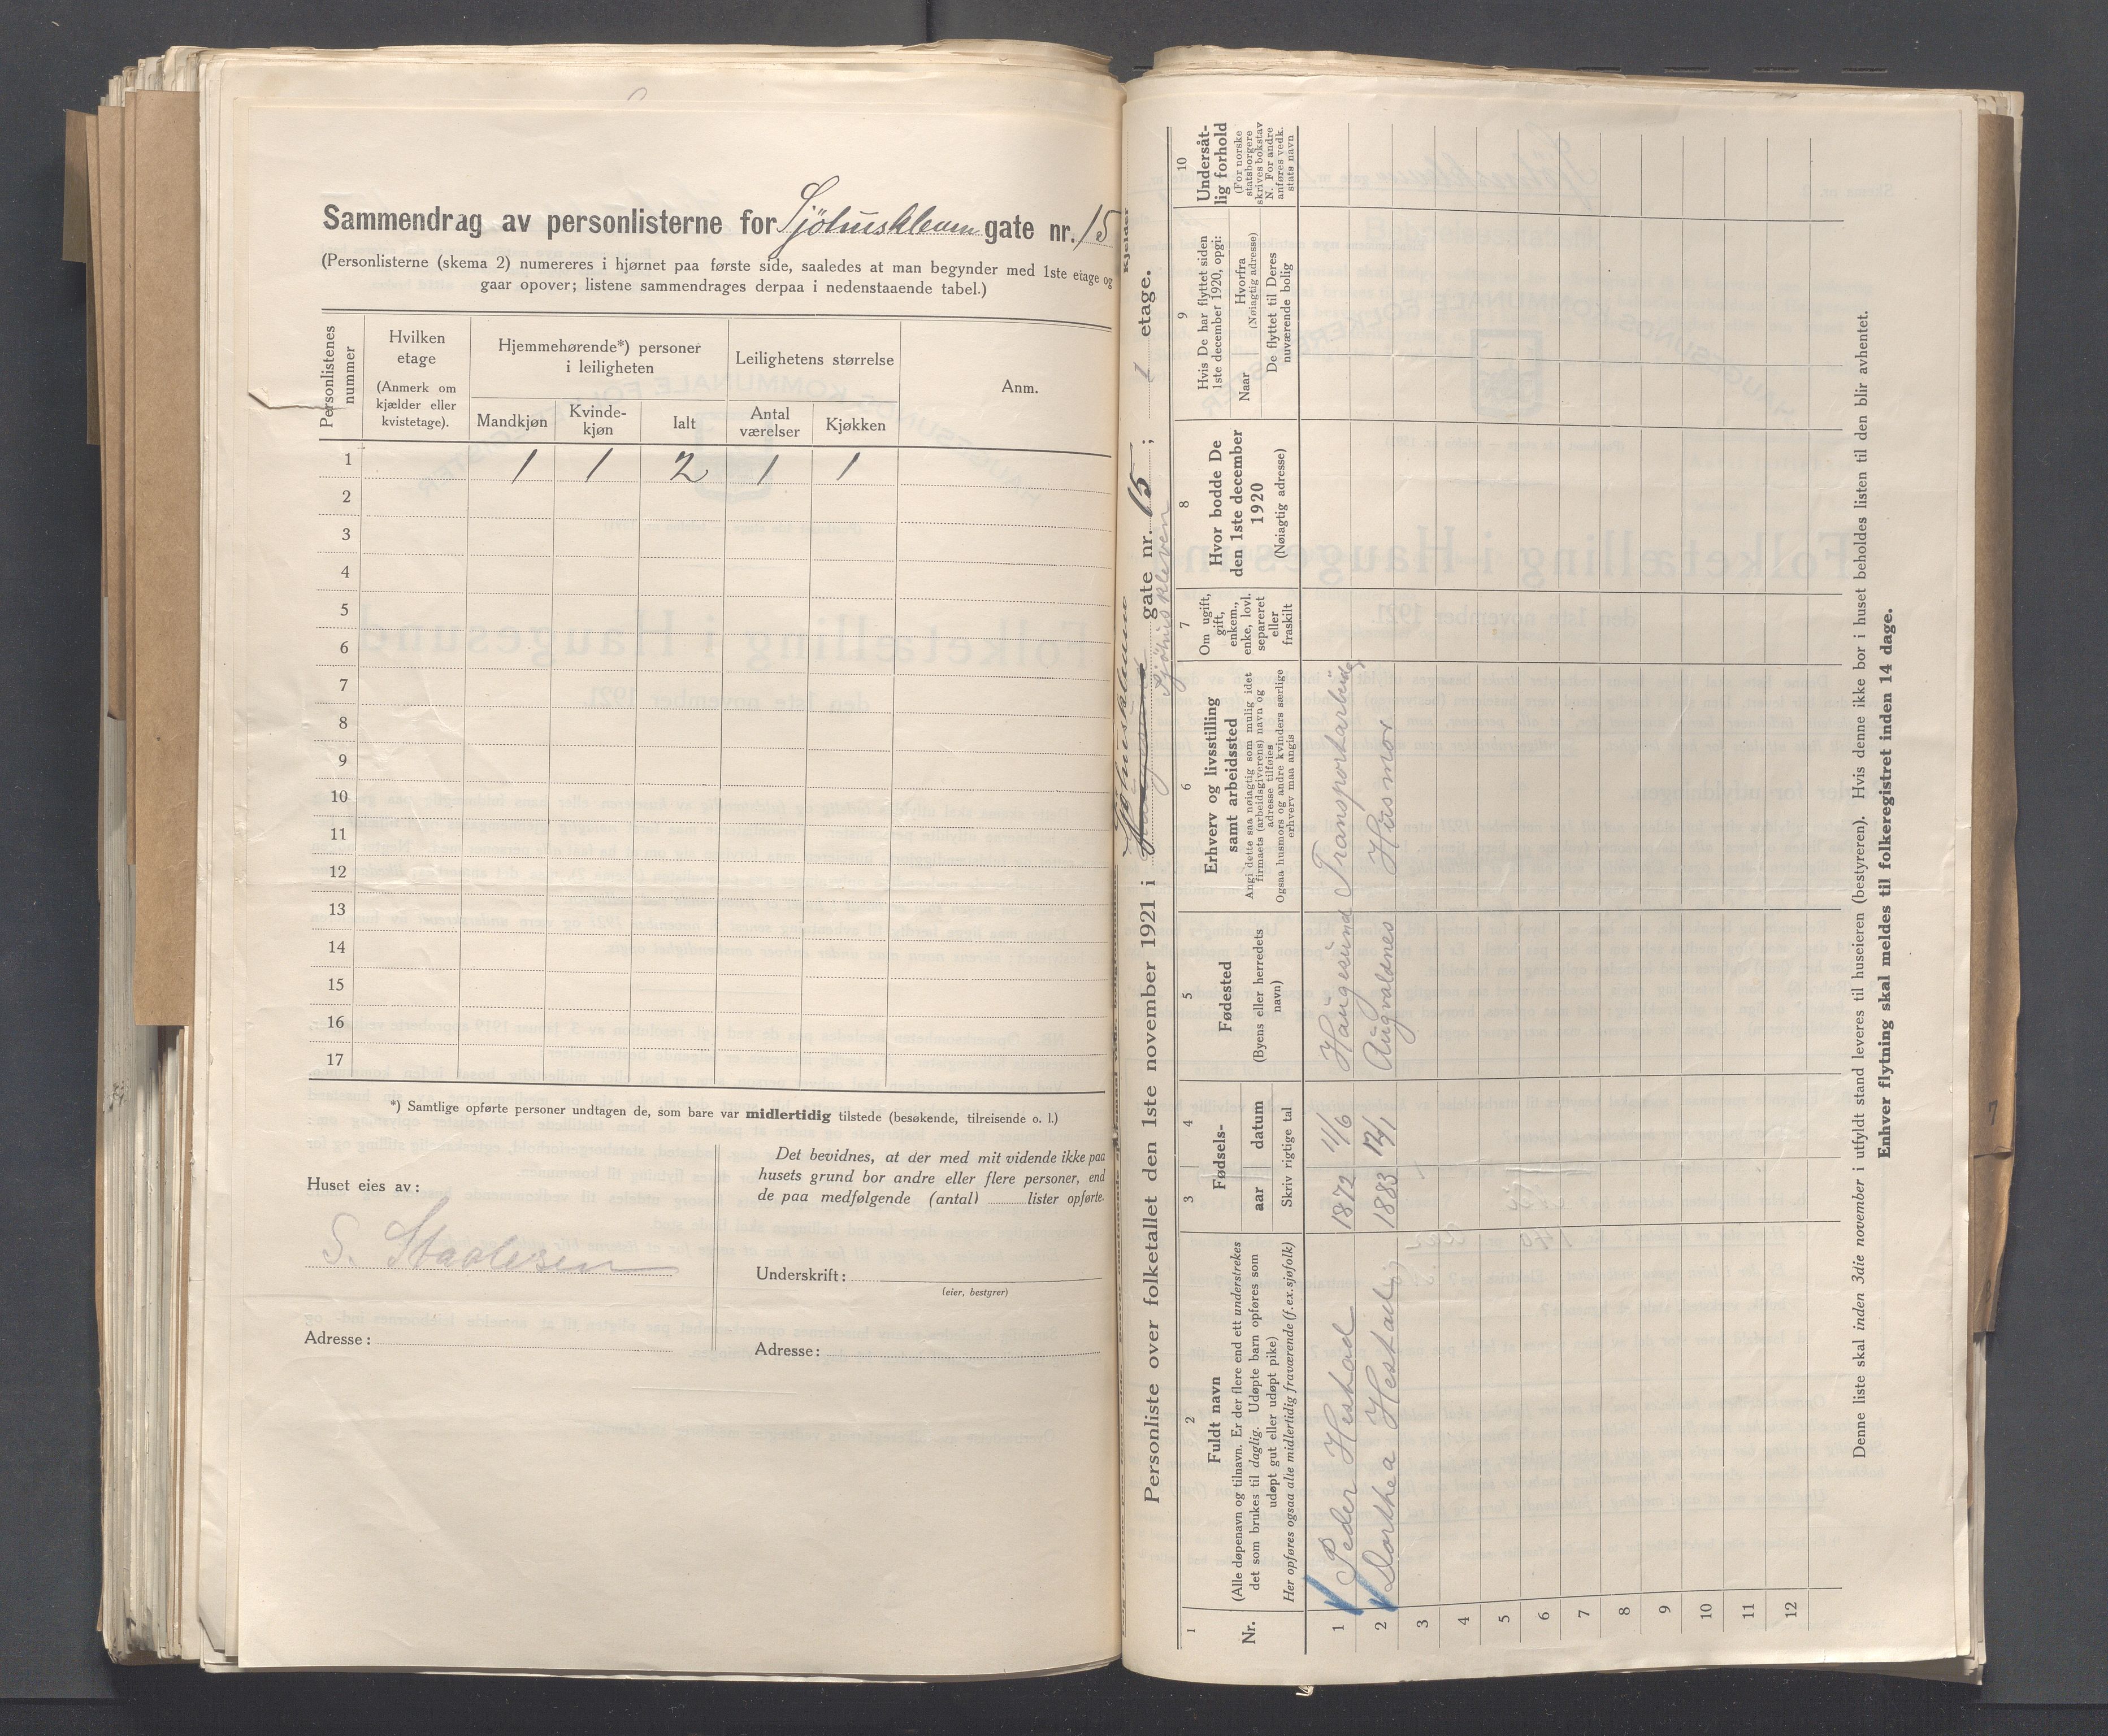 Sammendrag av personlisterne for Sjöhuskleven gate nr. 15
(Personlisterne (skema 2) numereres i hjørnet paa første side, saaledes at man begynder med 1ste etage og
gaar opover; listene sammendrages derpaa i nedenstaaende tabel.)
Personlistenes nummer
Hvilken etage
(Anmerk om kjælder eller kvistetage).
Hjemmehørende*) personer i leiligheten
Leilighetens størrelse
Anm.
Mandkjøn
Kvinde-kjøn
Ialt
Antal værelser
Kjøkken
1 1 1 2 1 1
2
3
4
5
6
7
8
9
10
11
12
13
14
15
16
17
*) Samtlige opførte personer undtagen de, som bare var midlertidig tilstede (besøkende, tilreisende o. l.)
Huset eies av:
S. Staalesen
Adresse:
Det bevidnes, at der med mit vidende ikke paa
husets grund bor andre eller flere personer, end
de paa medfølgende (antal) lister opførte.
Underskrift:
(eier, bestyrer)
Adresse:
Kjelder
Sjöhuskleven
Personliste over folketallet den 1ste november 1921 i gate nr. 15; 1 etage.
Sjöhuskleven
1
Nr.
2
Fuldt navn
(Alle døpenavn og tilnavn. Er der flere end ett understrekes
det som brukes til daglig. Udøpte barn opføres som
udøpt gut eller udøpt pike)
Her opføres ogsaa alle midlertidig fraværende (f.ex. sjøfolk)
3 4
Fødsels-
aar datum
Skriv rigtige tal
5
Fødested
(Byens eller herredets navn)
6
Erhverv og livsstilling
samt arbeidssted
Angi dette saa nøiagtig som mulig idet
firmaets (arbeidsgiverens) navn og
adresse tilføies
Ogsaa husmors og andre kvinders særlige
erhverv maa angis
7
Om ugift,
gift,
enkem.,
enke, lovl.
separeret
eller
fraskilt
8
Hvor bodde De
den 1ste december
1920
(Nøiagtig adresse)
9
Hvis De har flyttet siden
1ste december 1920, opgi:
Naar
Hvorfra
(Nøiagtig adresse)
De flyttet til Deres
nuværende bolig
10
Undersåt-
lig forhold
(For norske
statsborgere
skrives bokstav
N. For andre
anføres vedk.
stats navn
1 Peder Hestad 1872 11/6 Haugesund Transportarbeider
2 Dorthea Hestad 1883 12/1 Augvaldnes Husmor
3
4
5
6
7
8
9
10
11
12
Denne liste skal inden 3die november i utfyldt stand leveres til huseieren (bestyreren). Hvis denne ikke bor i huset beholdes listen til den blir avhentet.
Enhver flytning skal meldes til folkeregistret inden 14 dage.